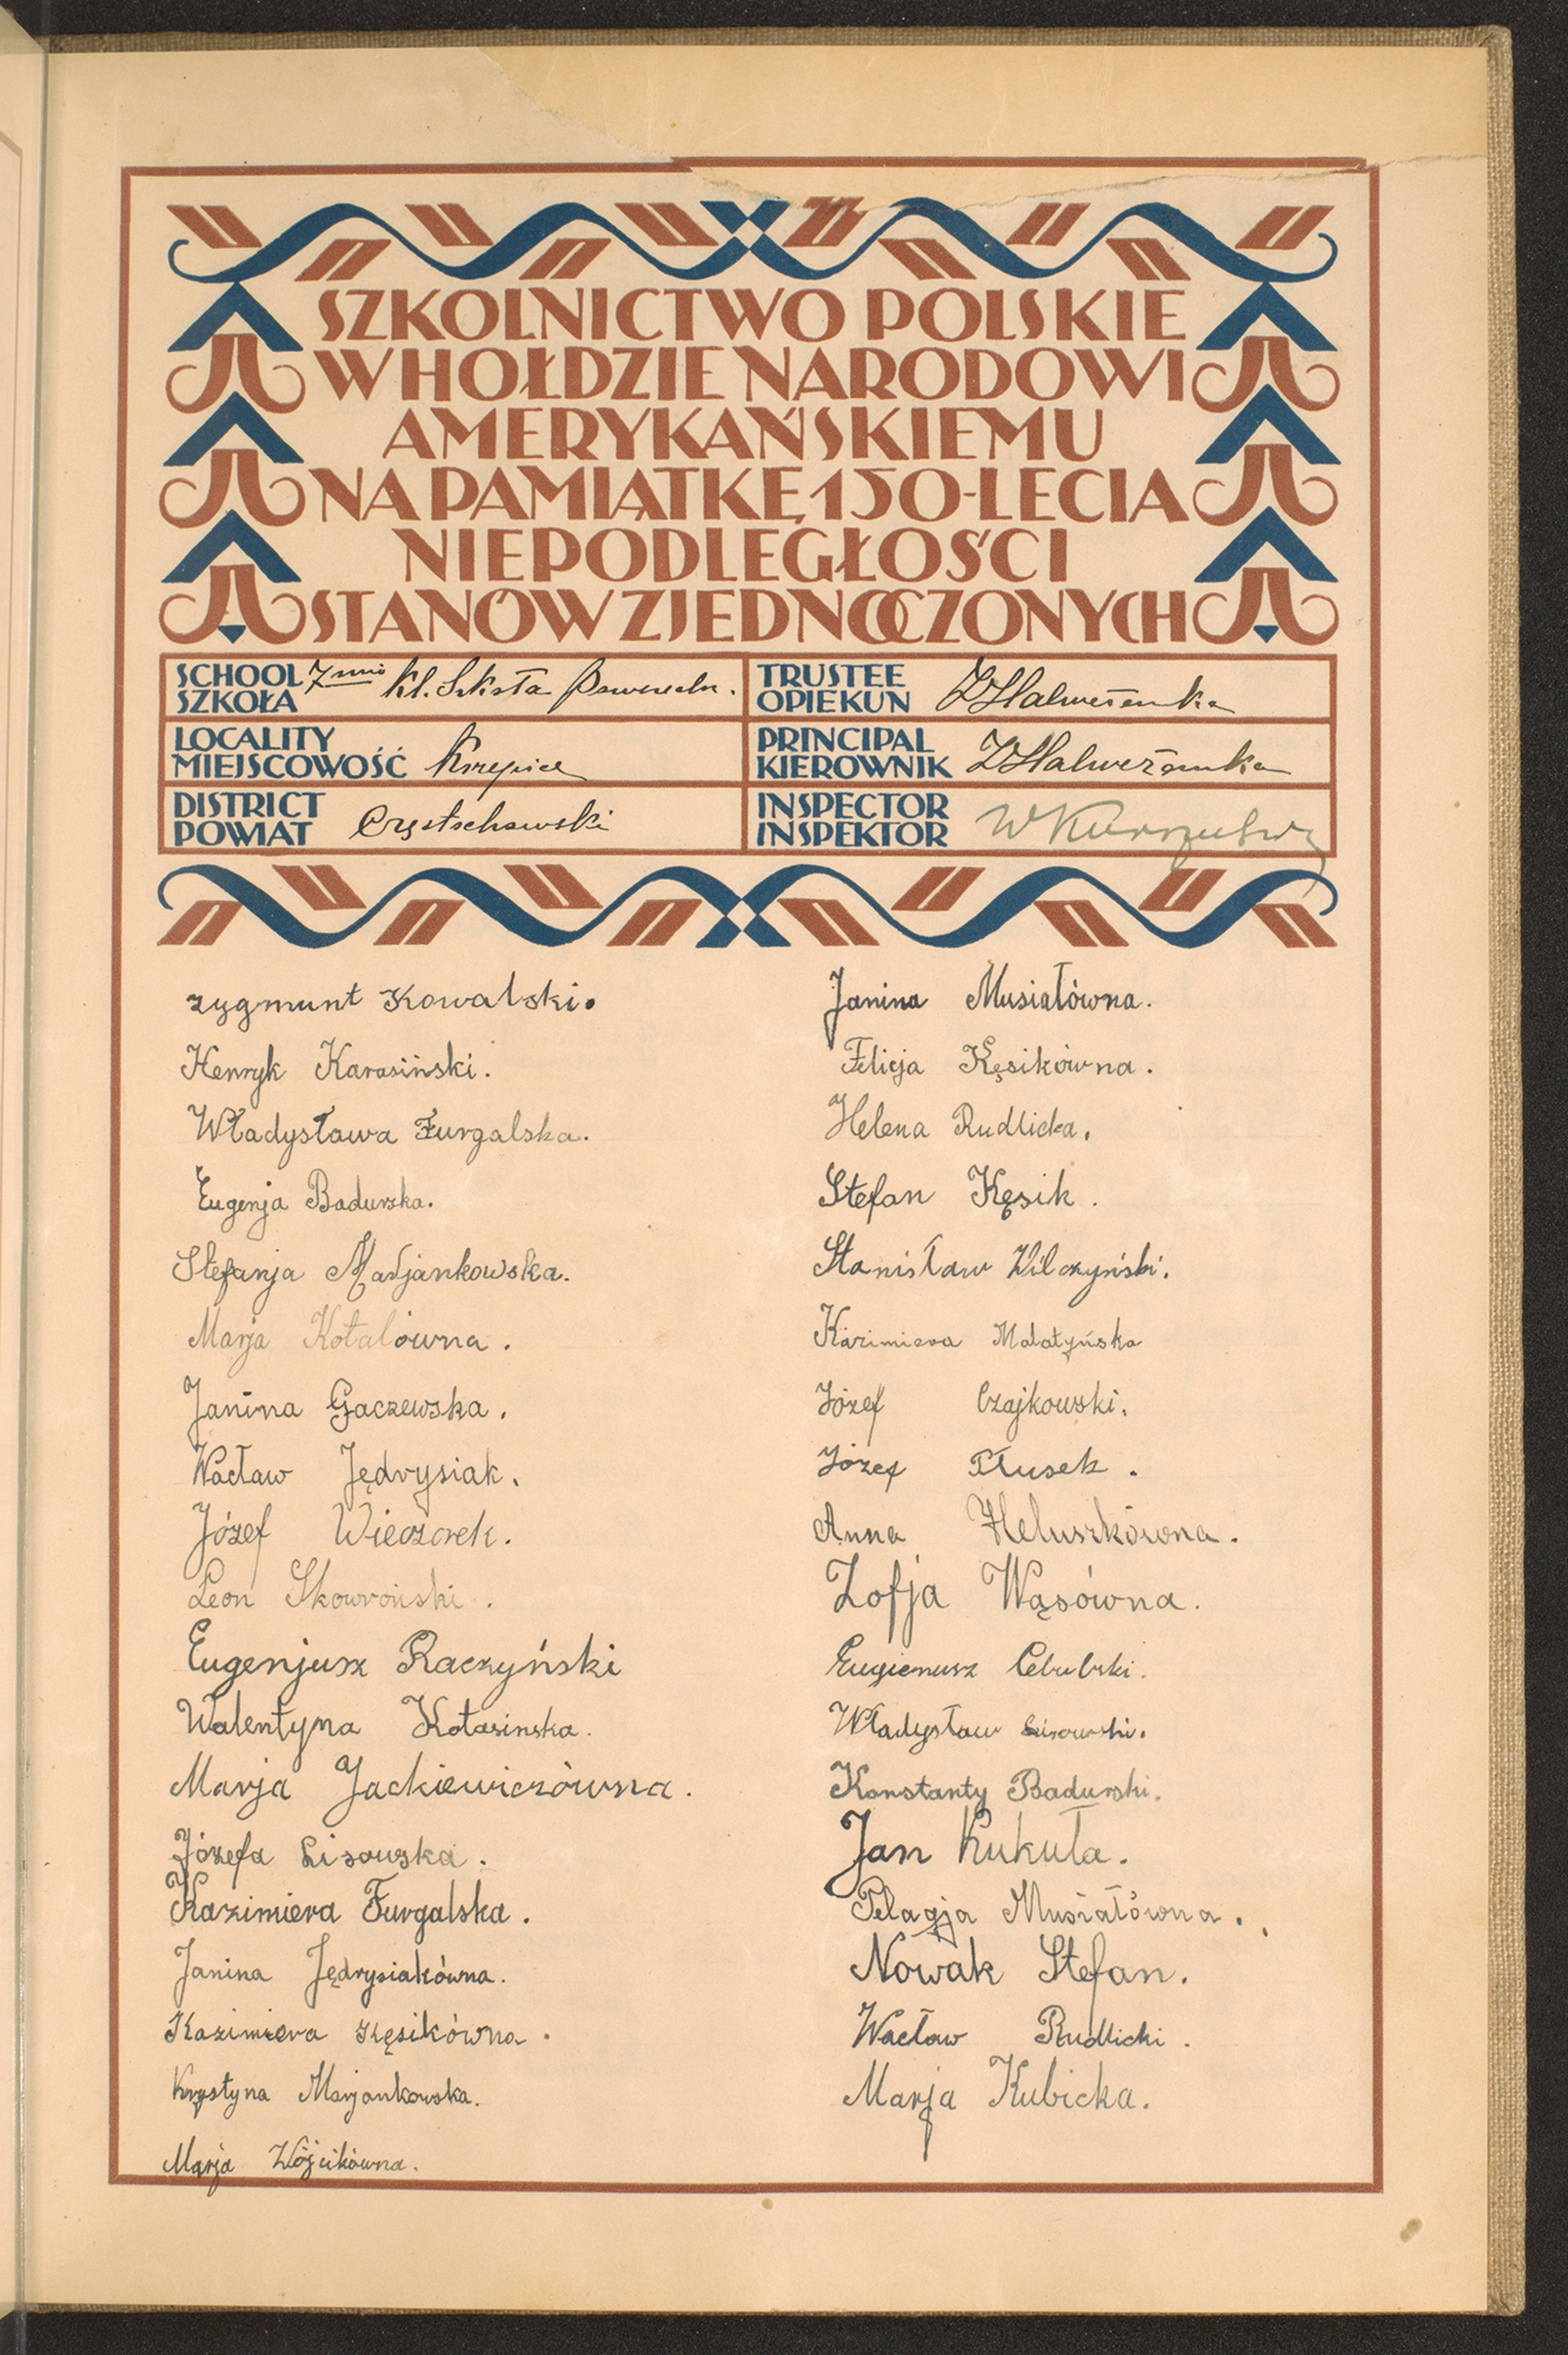 SZKOLNICTWO POLSKIE
W HOŁDZIE NARODOWI
AMERYKAŃSKIEMU
NA PAMIĄTKĘ 150-LECIA
NIEPODLEGŁOŚCI
STANÓW ZJEDNOCZONYCH
SCHOOL
SZKOŁA
7mio kl. Szkoła
TRUSTEE
OPIEKUN
LOCALITY
MIEJSCOWOŚĆ
Krzepice
PRINCIPAL
KIEROWNIK
DISTRICT
POWIAT
Częstochowski
INSPECTOR
INSPEKTOR
zygmunt Kowalski.
Henryk Karasiński.
Władysława Furgalska.
Eugenja Badurska.
Stefanja Marjankowska.
Marja Kotalówna.
Janina Gaczewska.
Wacław Jędrysiak.
Józef Wieczorek.
Leon Skowroński.
Eugenjusz Raczyński
Walentyna Kotasinska.
Marja Jackiewiczówna.
Józefa Lisowska.
Kazimiera Furgalska.
Janina Jędrysiakówna.
Kazimiera Kęsikówna.
Krystyna Marjankowska.
Marja Wójcikówna.
Janina Musiałówna.
Felicja Kęsikówna.
Helena Rudlicka.
Stefan Kęsik.
Stanisław Wilczyński.
Kazimiera Małatyńska
Józef Czajkowski.
Józef Tłusek.
Anna Heluszkówna.
Zofja Wąsówna.
Eugienusz Cebulski.
Władysław Lisowski.
Konstanty Badurski.
Jan Kukuła.
Pelagja Musiałówna.
Nowak Stefan.
Wacław Rudlicki.
Marja Kubicka.